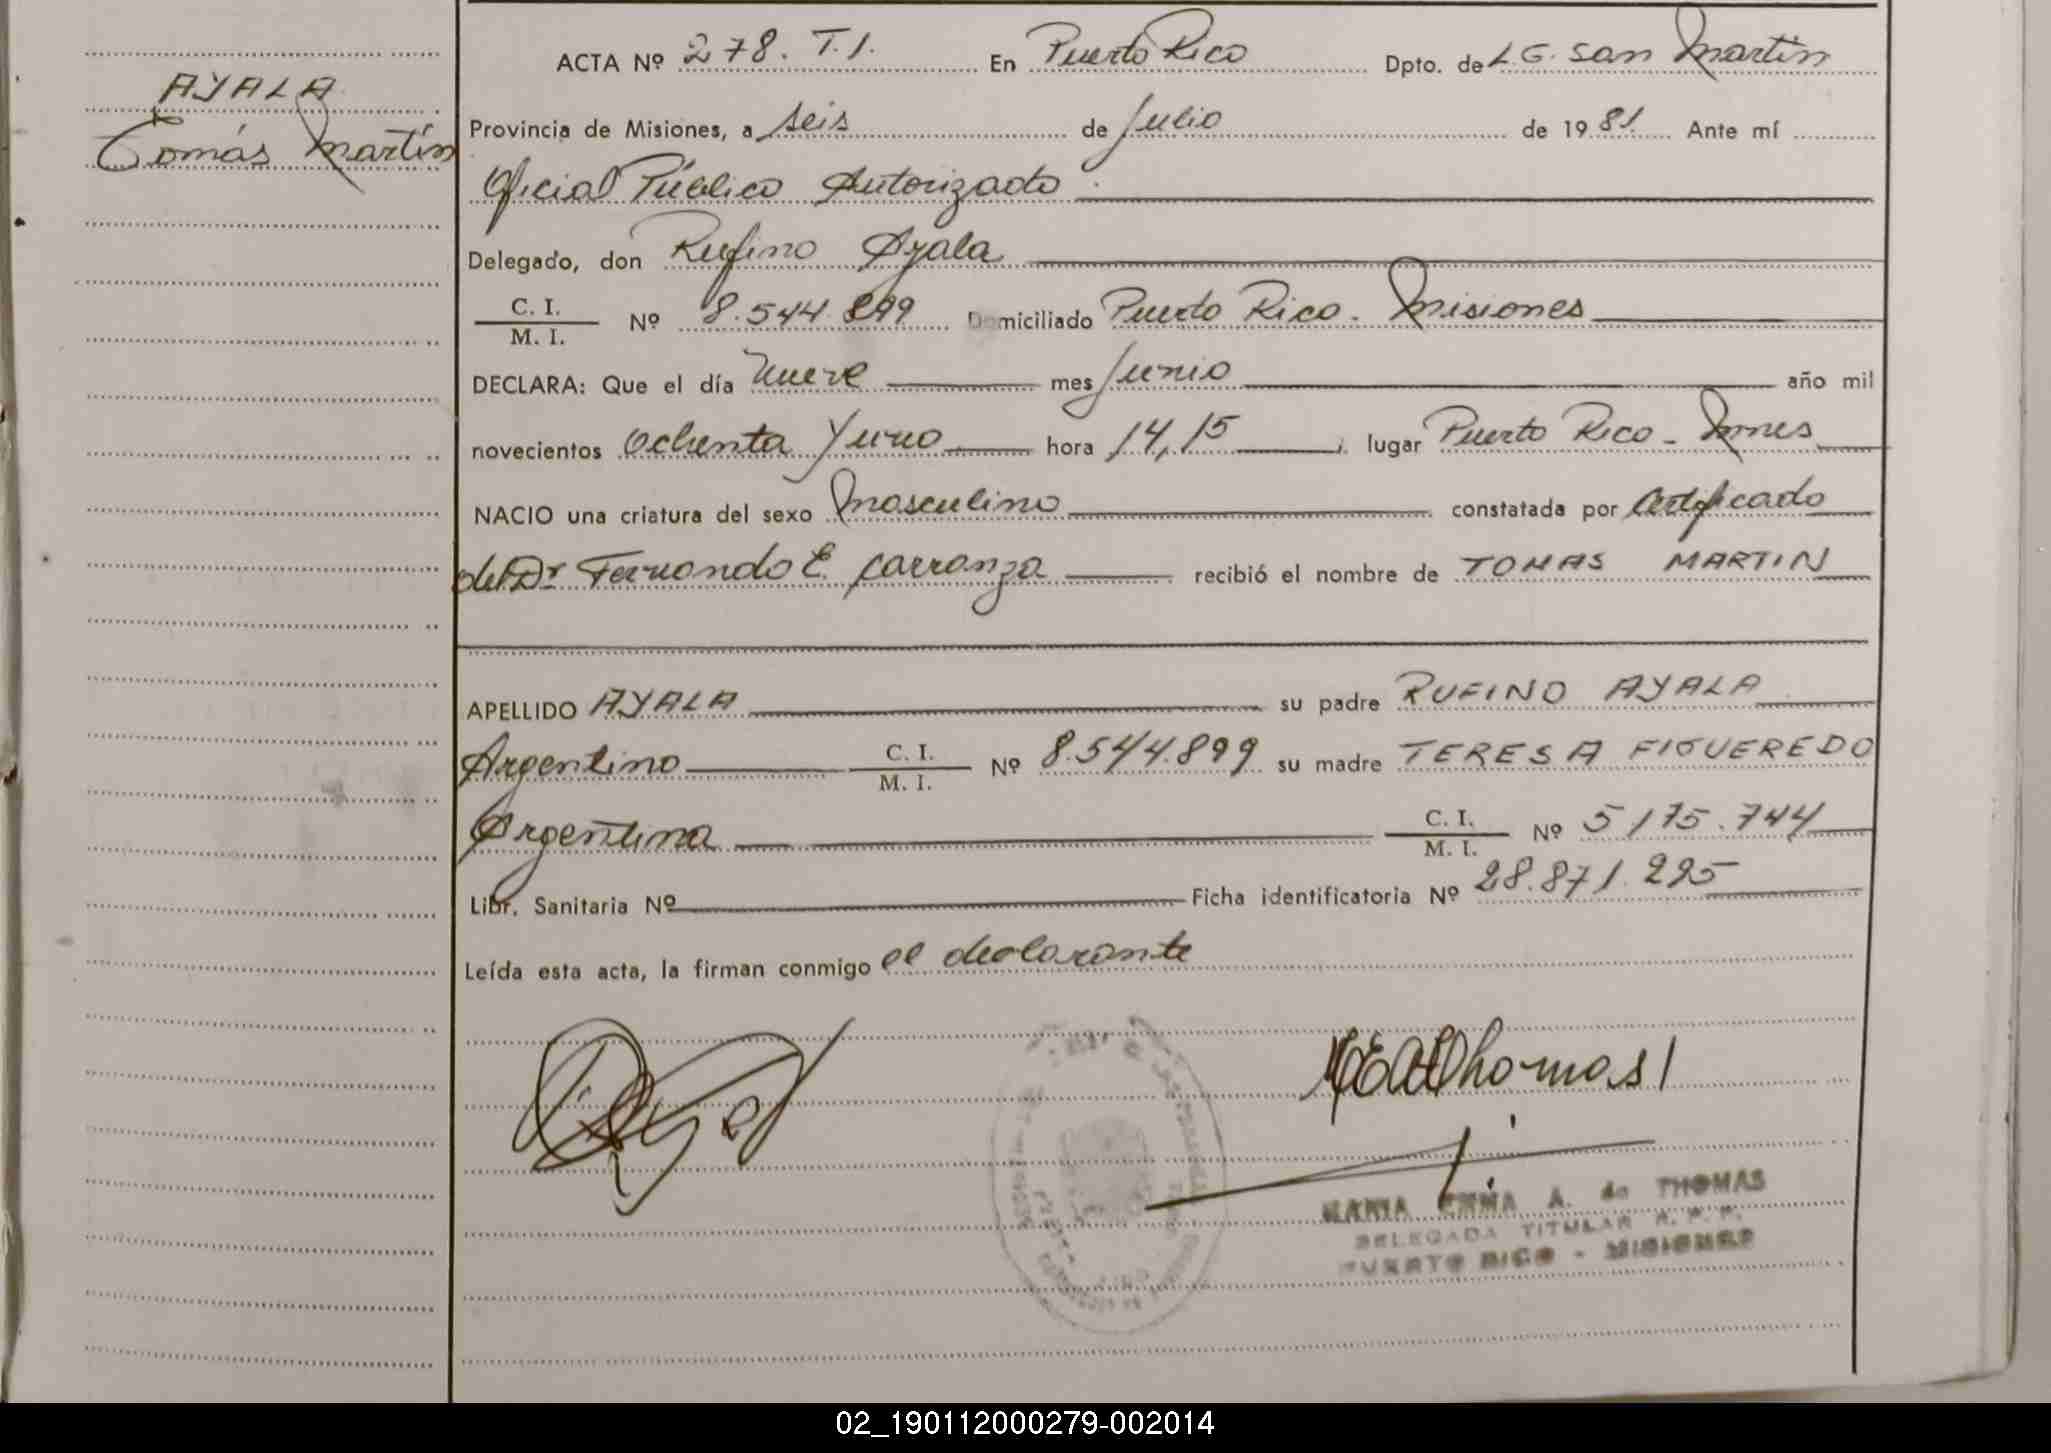 AYALA
Tomás Martín
ACTA Nº 278. T.I. En Puerto Rico Dpto. de L.G. San Martín
Provincia de Misiones, a seis de Julio de 1981. Ante mí
Oficial Público Autorizado.
Delegado, don Rufino Ayala
C. I.
M. I. Nº 8.544.899 Domiciliado Puerto Rico. Misiones
DECLARA: Que el día Nueve mes Junio año mil
novecientos Ochenta y uno hora 14,15 lugar Puerto Rico - Mnes
NACIO una criatura del sexo Masculino constatada por Certificado
del Dr Fernando E. Carranza recibió el nombre de TOMAS MARTIN
APELLIDO AYALA su padre RUFINO AYALA
Argentino C. I.
M. I. Nº 8.544.899 su madre TERESA FIGUEREDO
Argentina C. I.
M. I. Nº 5175.744
Libr. Sanitaria Nº Ficha identificatoria Nº 28.871.225
Leída esta acta, la firman conmigo el declarante
MEAdThomas
MARIA EMMA A. de THOMAS
DELEGADA TITULAR R. P. P.
PUERTO RICO - MISIONES
02_190112000279-002014